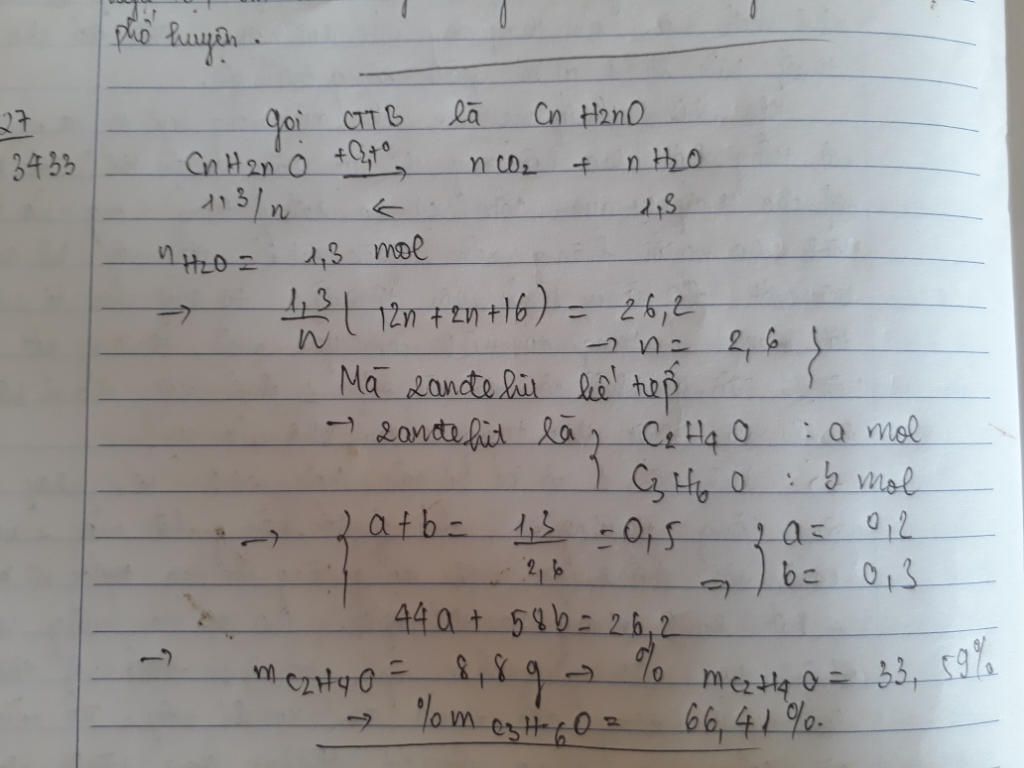 phố huyện.
27
3433
gọi CTTB là CnH2nO
CnH2nO +O2,t° → nCO2 + nH2O
1,3/n ← 1,3
nH2O = 1,3 mol
→ 1,3/n (12n+2n+16) = 26,2
→ n = 2,6 }
Mà 2anđehit kế tiếp
→ 2anđehit là } C2H4O : a mol
C3H6O : b mol
→ } a+b = 1,3/2,6 = 0,5 } a = 0,2
→ b = 0,3
44a + 58b = 26,2
→ mC2H4O = 8,8g → % mC2H4O = 33,59%
→ %mC3H6O = 66,41%.